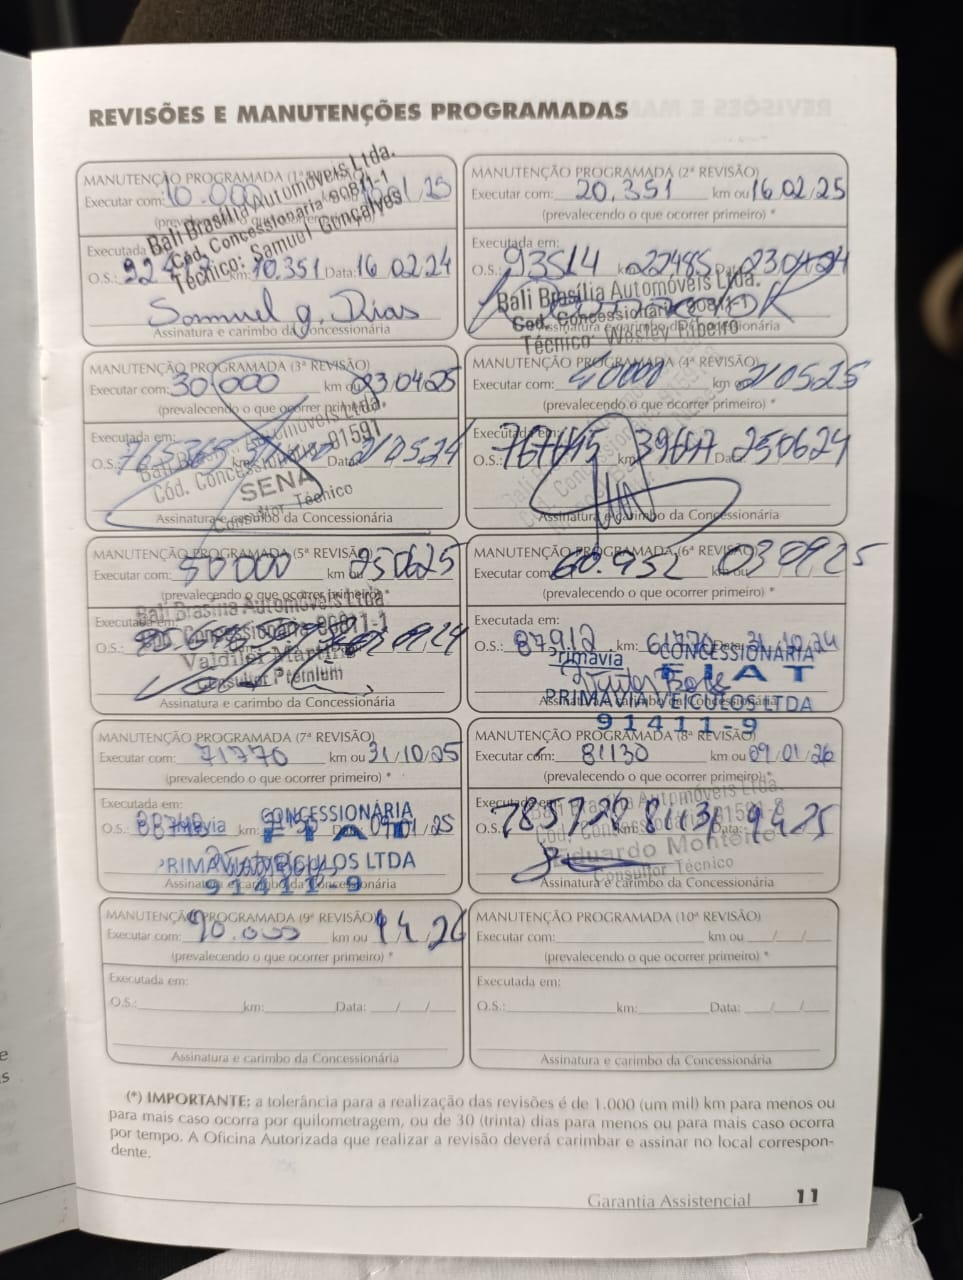 REVISÕES E MANUTENÇÕES PROGRAMADAS
MANUTENÇÃO PROGRAMADA (1ª REVISÃO)
Executar com: 10.000
Bali Brasília Automóveis Ltda.
Cód. Concessionária 90811-1
Técnico: Samuel Gonçalves
Executada em:
O.S.: km: 10.351 Data: 16 02 24
Samuel g. Dias
Assinatura e carimbo da Concessionária
MANUTENÇÃO PROGRAMADA (2ª REVISÃO)
Executar com: 20.351 km ou 16.02.25
(prevalecendo o que ocorrer primeiro) *
Executada em:
O.S.: 93514 km: 22485 Data: 230424
Bali Brasília Automóveis Ltda.
Cod. Concessionária 90811-1
Assinatura e carimbo da Concessionária
Técnico: Wesley Ribeiro
MANUTENÇÃO PROGRAMADA (3ª REVISÃO)
Executar com: 30.000 km ou 23.04.25
(prevalecendo o que ocorrer primeiro) *
Executada em:
O.S.: 765365 km: Data: 210524
Cód. Concessionária 91591
SENA
Consultor Técnico
Assinatura e carimbo da Concessionária
MANUTENÇÃO PROGRAMADA (4ª REVISÃO)
Executar com: 40000 km ou 210525
(prevalecendo o que ocorrer primeiro) *
Executada em:
O.S.: 767645 km: 39647 Data: 250624
Assinatura e carimbo da Concessionária
MANUTENÇÃO PROGRAMADA (5ª REVISÃO)
Executar com: 50000 km ou 250625
(prevalecendo o que ocorrer primeiro) *
Bali Brasília Automóveis Ltda
Executada em:
Cod. Concessionária 90811-1
O.S.:
Valdilei Martins
Consultor Premium
Assinatura e carimbo da Concessionária
MANUTENÇÃO PROGRAMADA (6ª REVISÃO)
Executar com: 60.952 km ou 030925
(prevalecendo o que ocorrer primeiro) *
Executada em:
O.S.: 87912 km: 61770 Data: 31 10 24
Primavia CONCESSIONÁRIA
FIAT
PRIMAVIA VEICULOS LTDA
Assinatura e carimbo da Concessionária
91411-9
MANUTENÇÃO PROGRAMADA (7ª REVISÃO)
Executar com: 71770 km ou 31/10/25
(prevalecendo o que ocorrer primeiro) *
Executada em:
CONCESSIONÁRIA
O.S.: km: Data: 09/01/25
FIAT
PRIMAVIA VEICULOS LTDA
Assinatura e carimbo da Concessionária
91411-9
MANUTENÇÃO PROGRAMADA (8ª REVISÃO)
Executar com: 81130 km ou 09/01/26
(prevalecendo o que ocorrer primeiro) *
Executada em:
O.S.: 785728 km: 81131 Data: 9 4 25
Cód. Concessionária 91591-8
Eduardo Monteiro
Consultor Técnico
Assinatura e carimbo da Concessionária
MANUTENÇÃO PROGRAMADA (9ª REVISÃO)
Executar com: 90.000 km ou 9/4/26
(prevalecendo o que ocorrer primeiro) *
Executada em:
O.S.: km: Data: / /
Assinatura e carimbo da Concessionária
MANUTENÇÃO PROGRAMADA (10ª REVISÃO)
Executar com: km ou / /
(prevalecendo o que ocorrer primeiro) *
Executada em:
O.S.: km: Data: / /
Assinatura e carimbo da Concessionária
(*) IMPORTANTE: a tolerância para a realização das revisões é de 1.000 (um mil) km para menos ou
para mais caso ocorra por quilometragem, ou de 30 (trinta) dias para menos ou para mais caso ocorra
por tempo. A Oficina Autorizada que realizar a revisão deverá carimbar e assinar no local correspon-
dente.
Garantia Assistencial 11